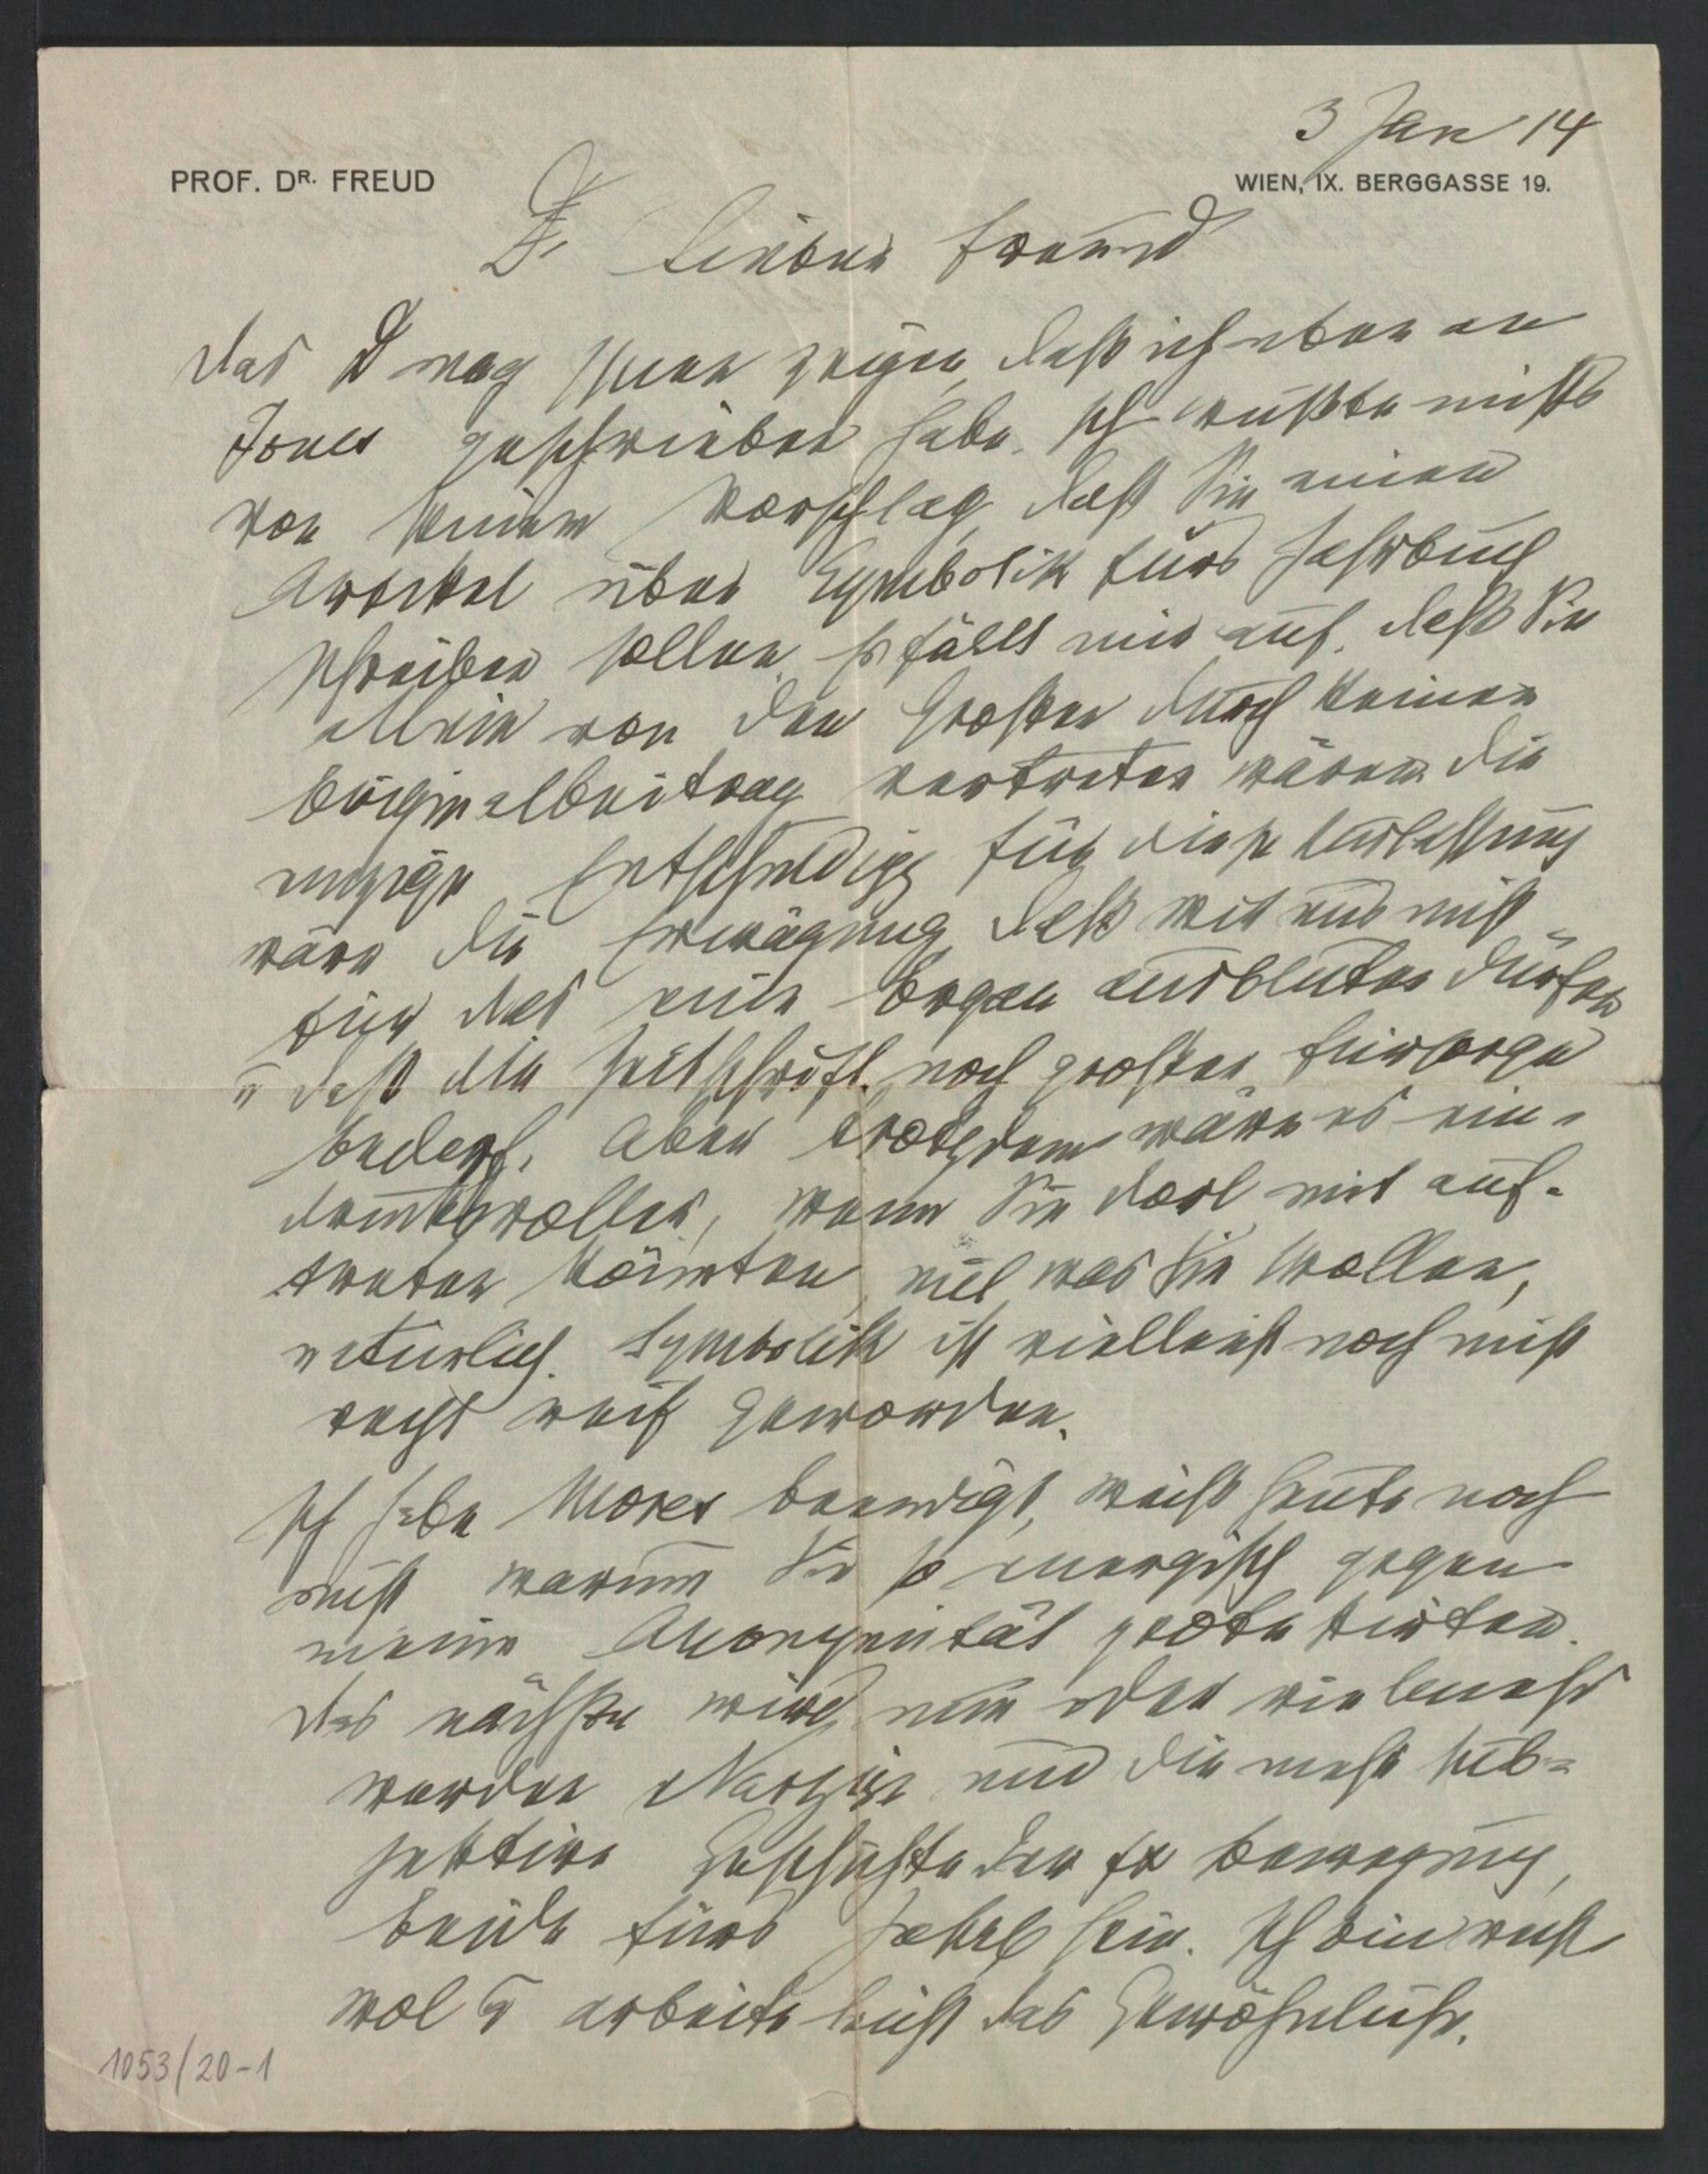 3 Jan 14
PROF. DR. FREUD
WIEN, IX. BERGGASSE 19.
D Lieber Freund
Das D mag Ihnen zeigen, daß ich eben an
Jones geschrieben habe. Ich wußte nichts
von seinem Vorschlag, daß Sie einen
Artikel über Symbolik fürs Jahrbuch
schreiben sollen. Es fällt mir auf, daß Sie
allein von den Großen durch keinen
Originalbeitrag vertreten wären. Die
einzige Entschuldigg für diese Unterlassung
wäre die Erwägung, daß wir uns nicht
für das eine Organ ausbluten dürfen
u daß die Zeitschrift noch großer Fürsorge
bedarf. Aber trotzdem wäre es ein-
drucksvoller, wenn Sie dort mit auf-
treten könnten, mit was Sie wollen,
natürlich. Symbolik ist vielleicht noch nicht
recht reif geworden.
Ich habe Moses beendigt, weiß heute noch
nicht warum Sie so energisch gegen
meine Anonymität protestirten.
Das nächste wird nun oder vielmehr
werden Narzißm und die mehr sub-
jektive Geschichte der ψα Bewegung,
beide fürs Jahrb sein. Ich bin recht
wol u arbeite leicht das Gewöhnliche.
1053/20-1